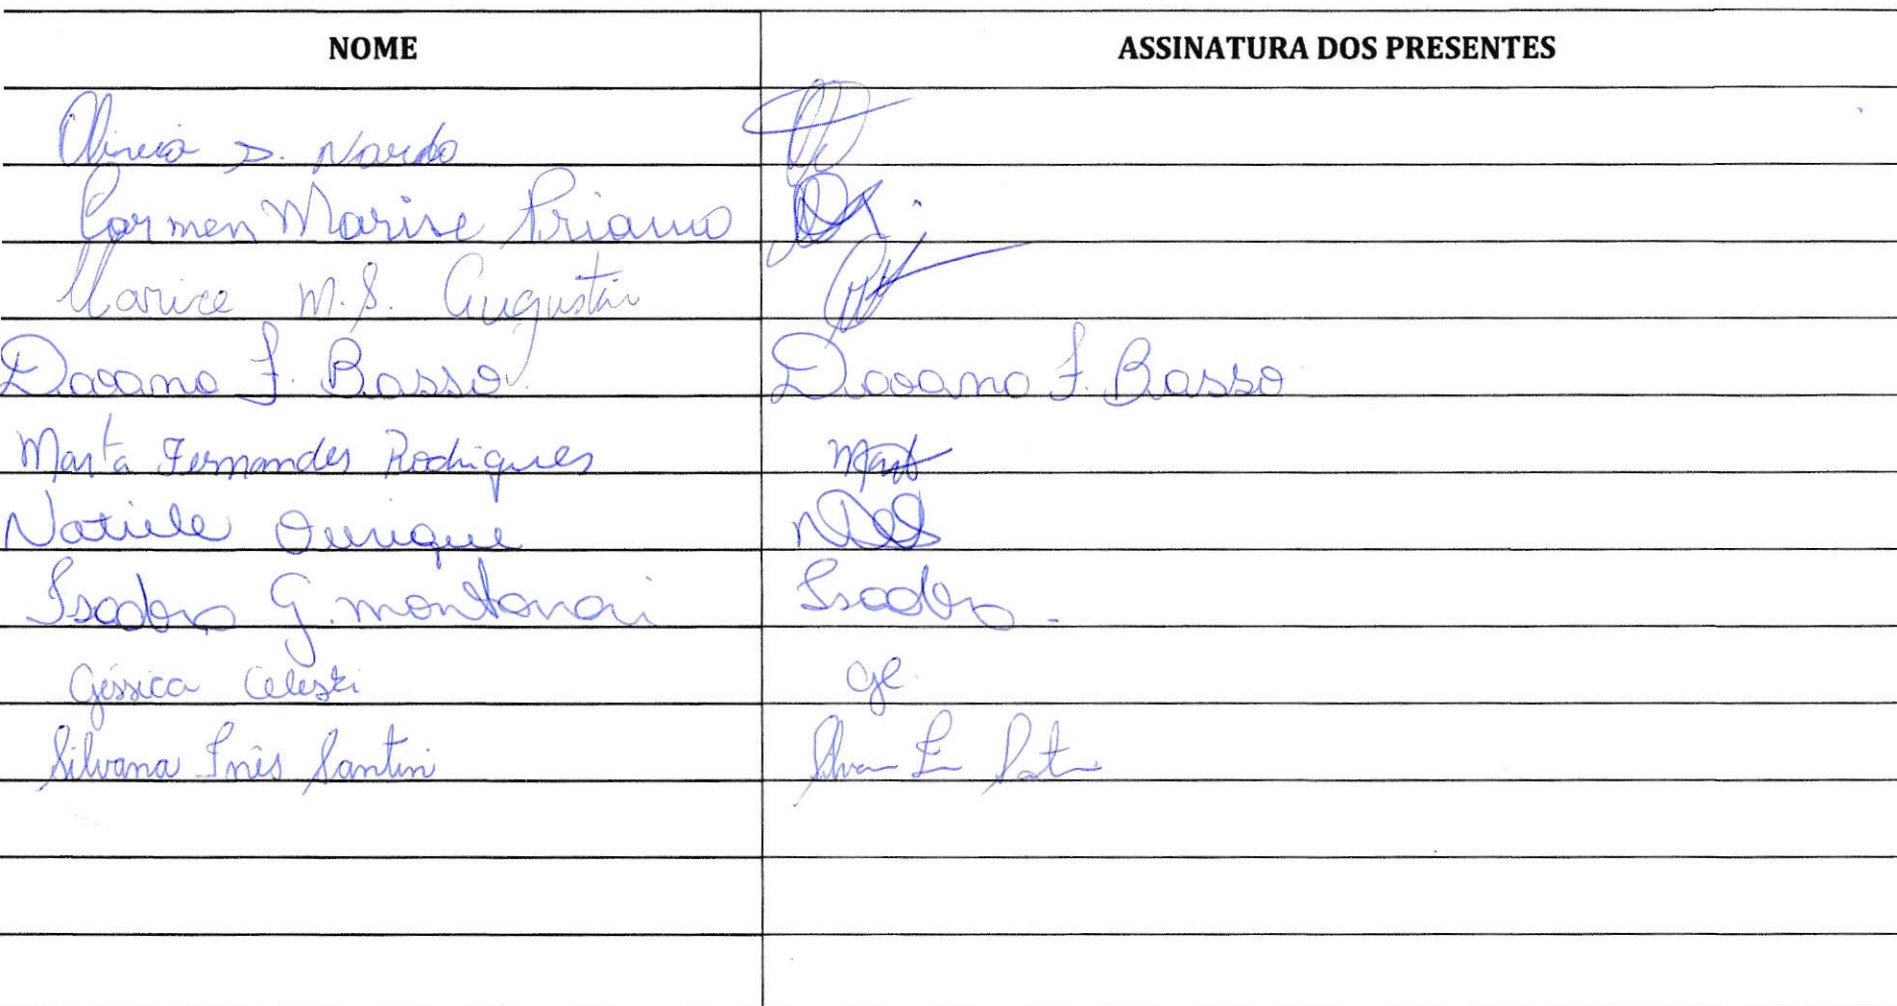 NOME ASSINATURA DOS PRESENTES
D. Nardo
Carmen Marise Priamo
Marice M.S. Augustin
F. Basso F. Basso
Marta Fernandes Rodrigues
Natiele Ourique
Isadora G. Montanari Isadora
Géssica Celeski
Silvana Inês Santin